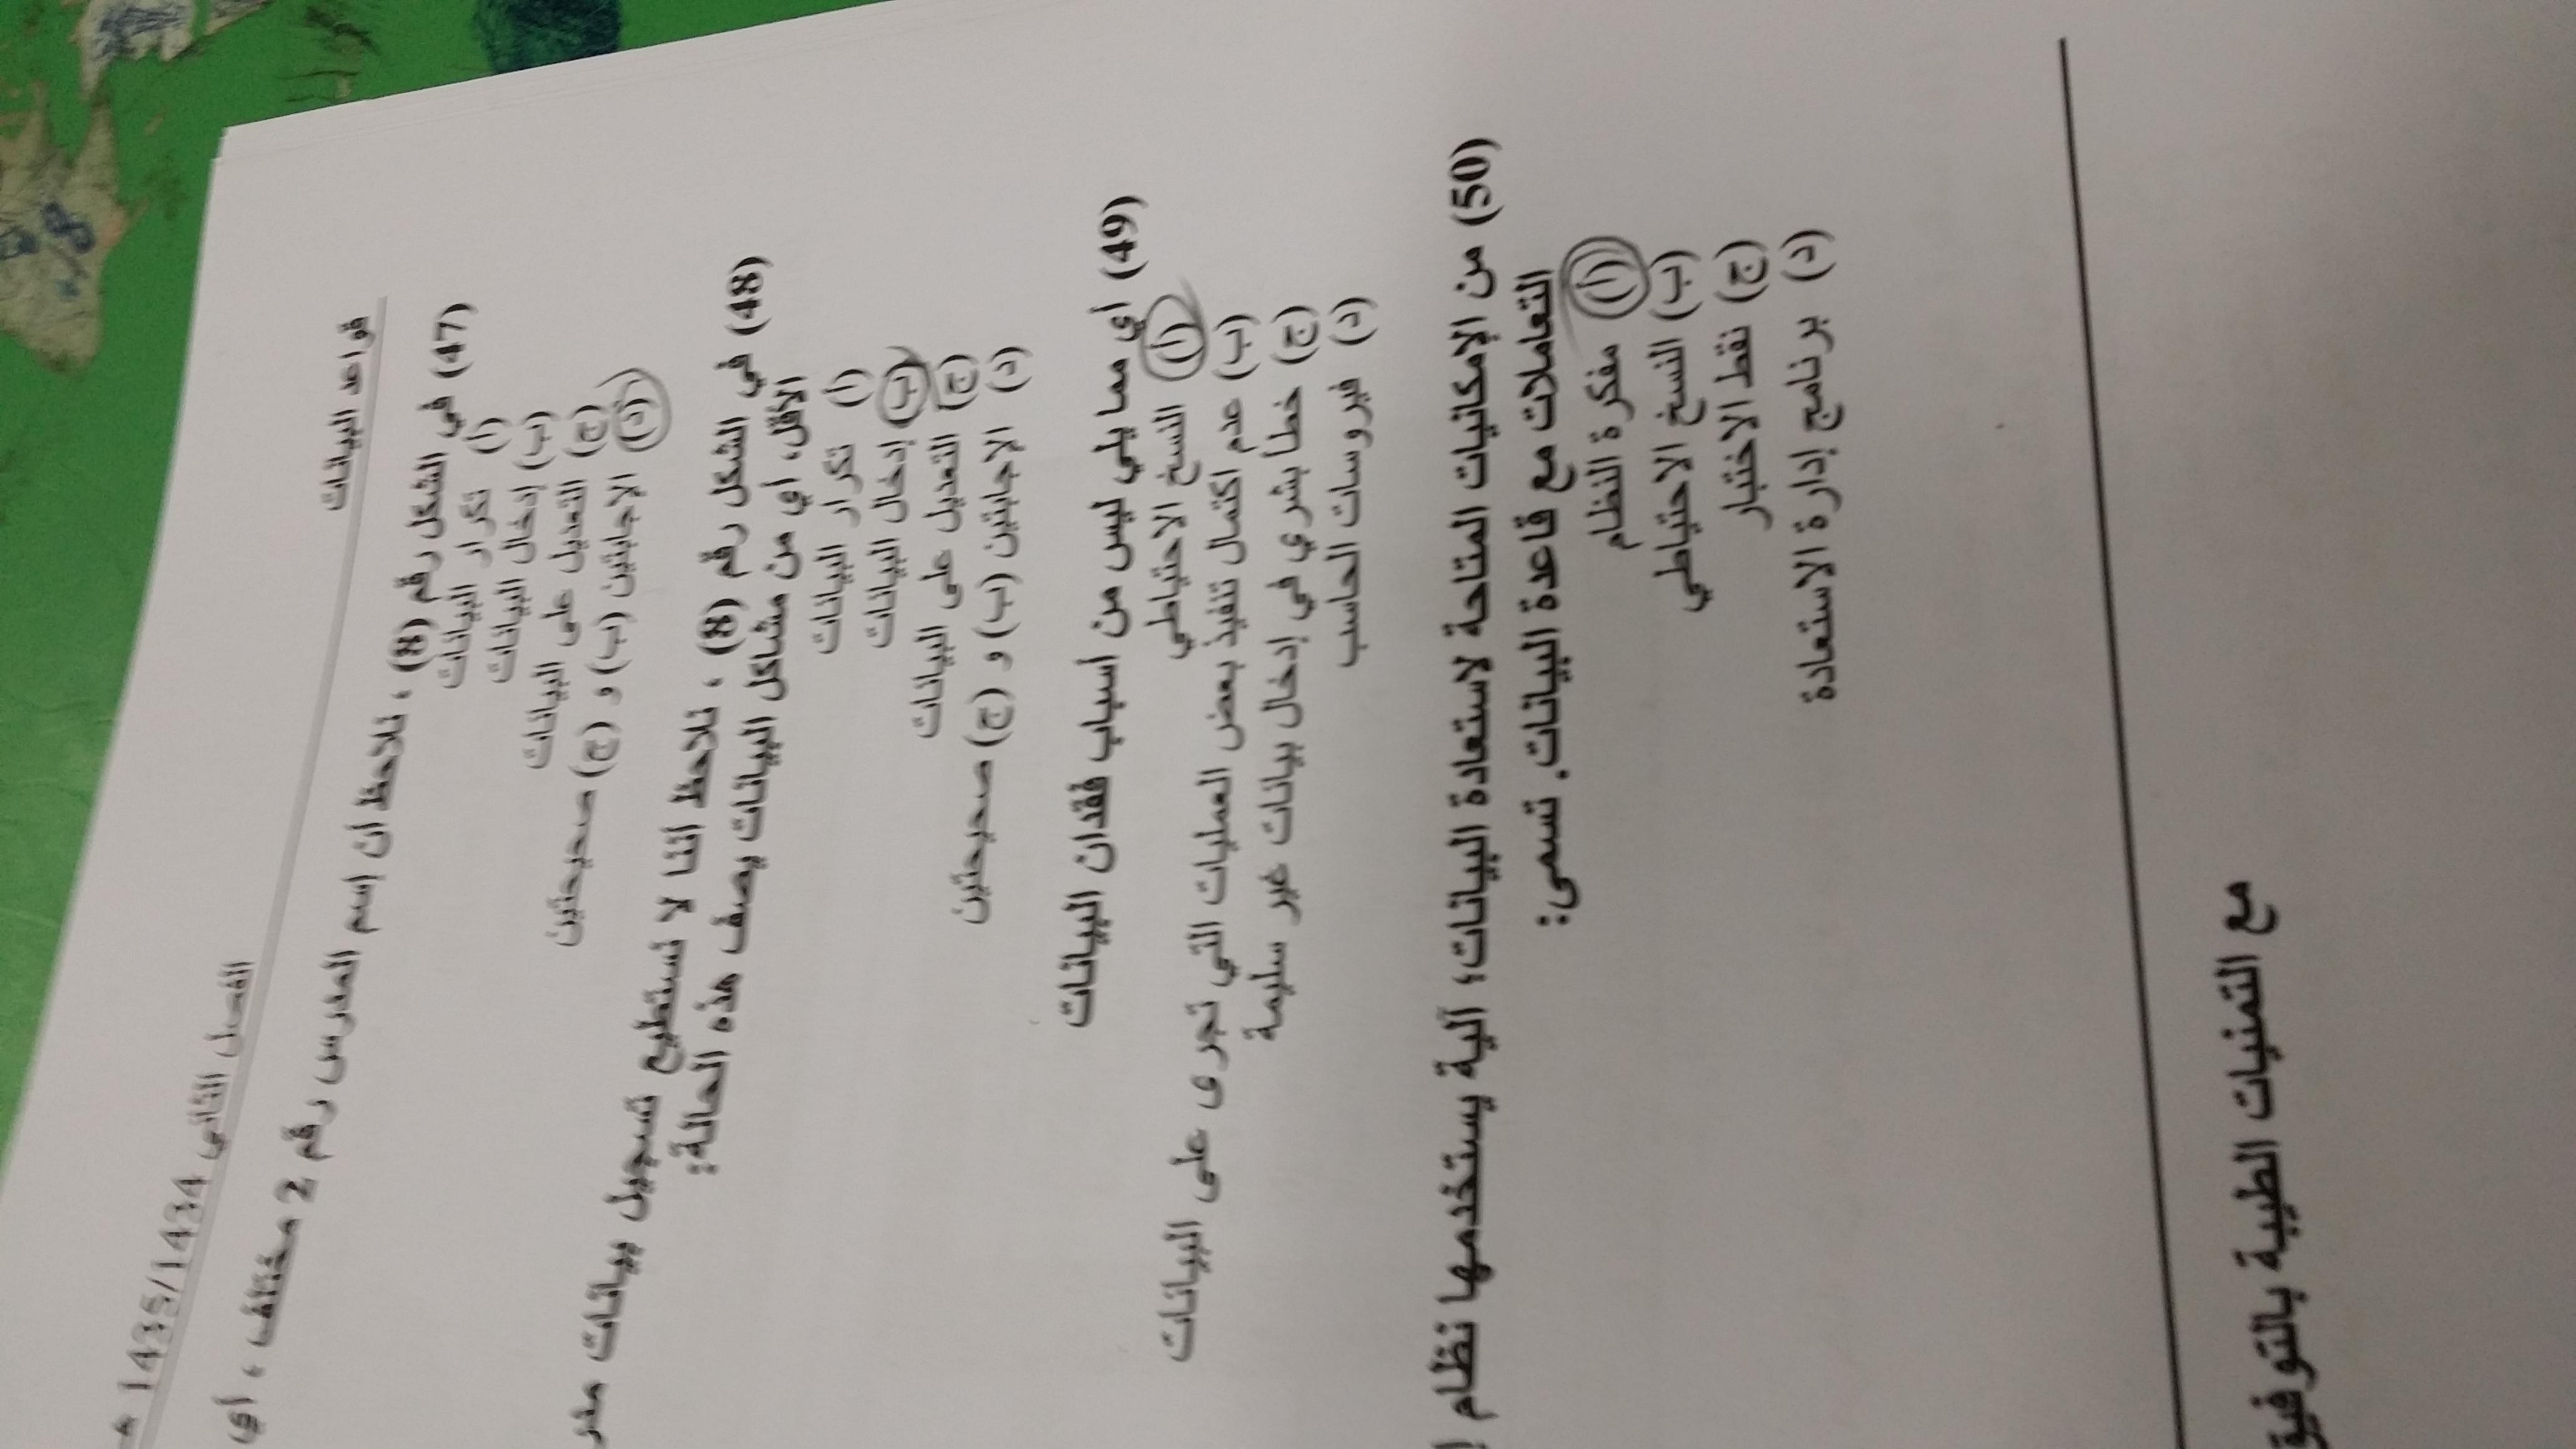 قواعد البيانات
الفصل الثاني 1435/1434 هـ
(47) في الشكل رقم (8) ، نلاحظ أن إسم المدرس رقم 2 مختلف ، أي
(أ) تكرار البيانات
(ب) إدخال البيانات
(ج) التعديل على البيانات
(د) الإجابتين (ب) و (ج) صحيحتين
(48) في الشكل رقم (8) ، نلاحظ أننا لا نستطيع تسجيل بيانات
الأقل، أي من مشاكل البيانات يصف هذه الحالة:
(أ) تكرار البيانات
(ب) إدخال البيانات
(ج) التعديل على البيانات
(د) الإجابتين (ب) و (ج) صحيحتين
(49) أي مما يلي ليس من أسباب فقدان البيانات
(أ) النسخ الاحتياطي
(ب) عدم اكتمال تنفيذ بعض العمليات التي تجرى على البيانات
(ج) خطأ بشري في إدخال بيانات غير سليمة
(د) فيروسات الحاسب
(50) من الإمكانيات المتاحة لاستعادة البيانات؛ آلية يستخدمها نظام
التعاملات مع قاعدة البيانات. تسمى:
(أ) مفكرة النظام
(ب) النسخ الاحتياطي
(ج) نقط الاختبار
(د) برنامج إدارة الاستعادة
مع التمنيات الطيبة بالتوفيق